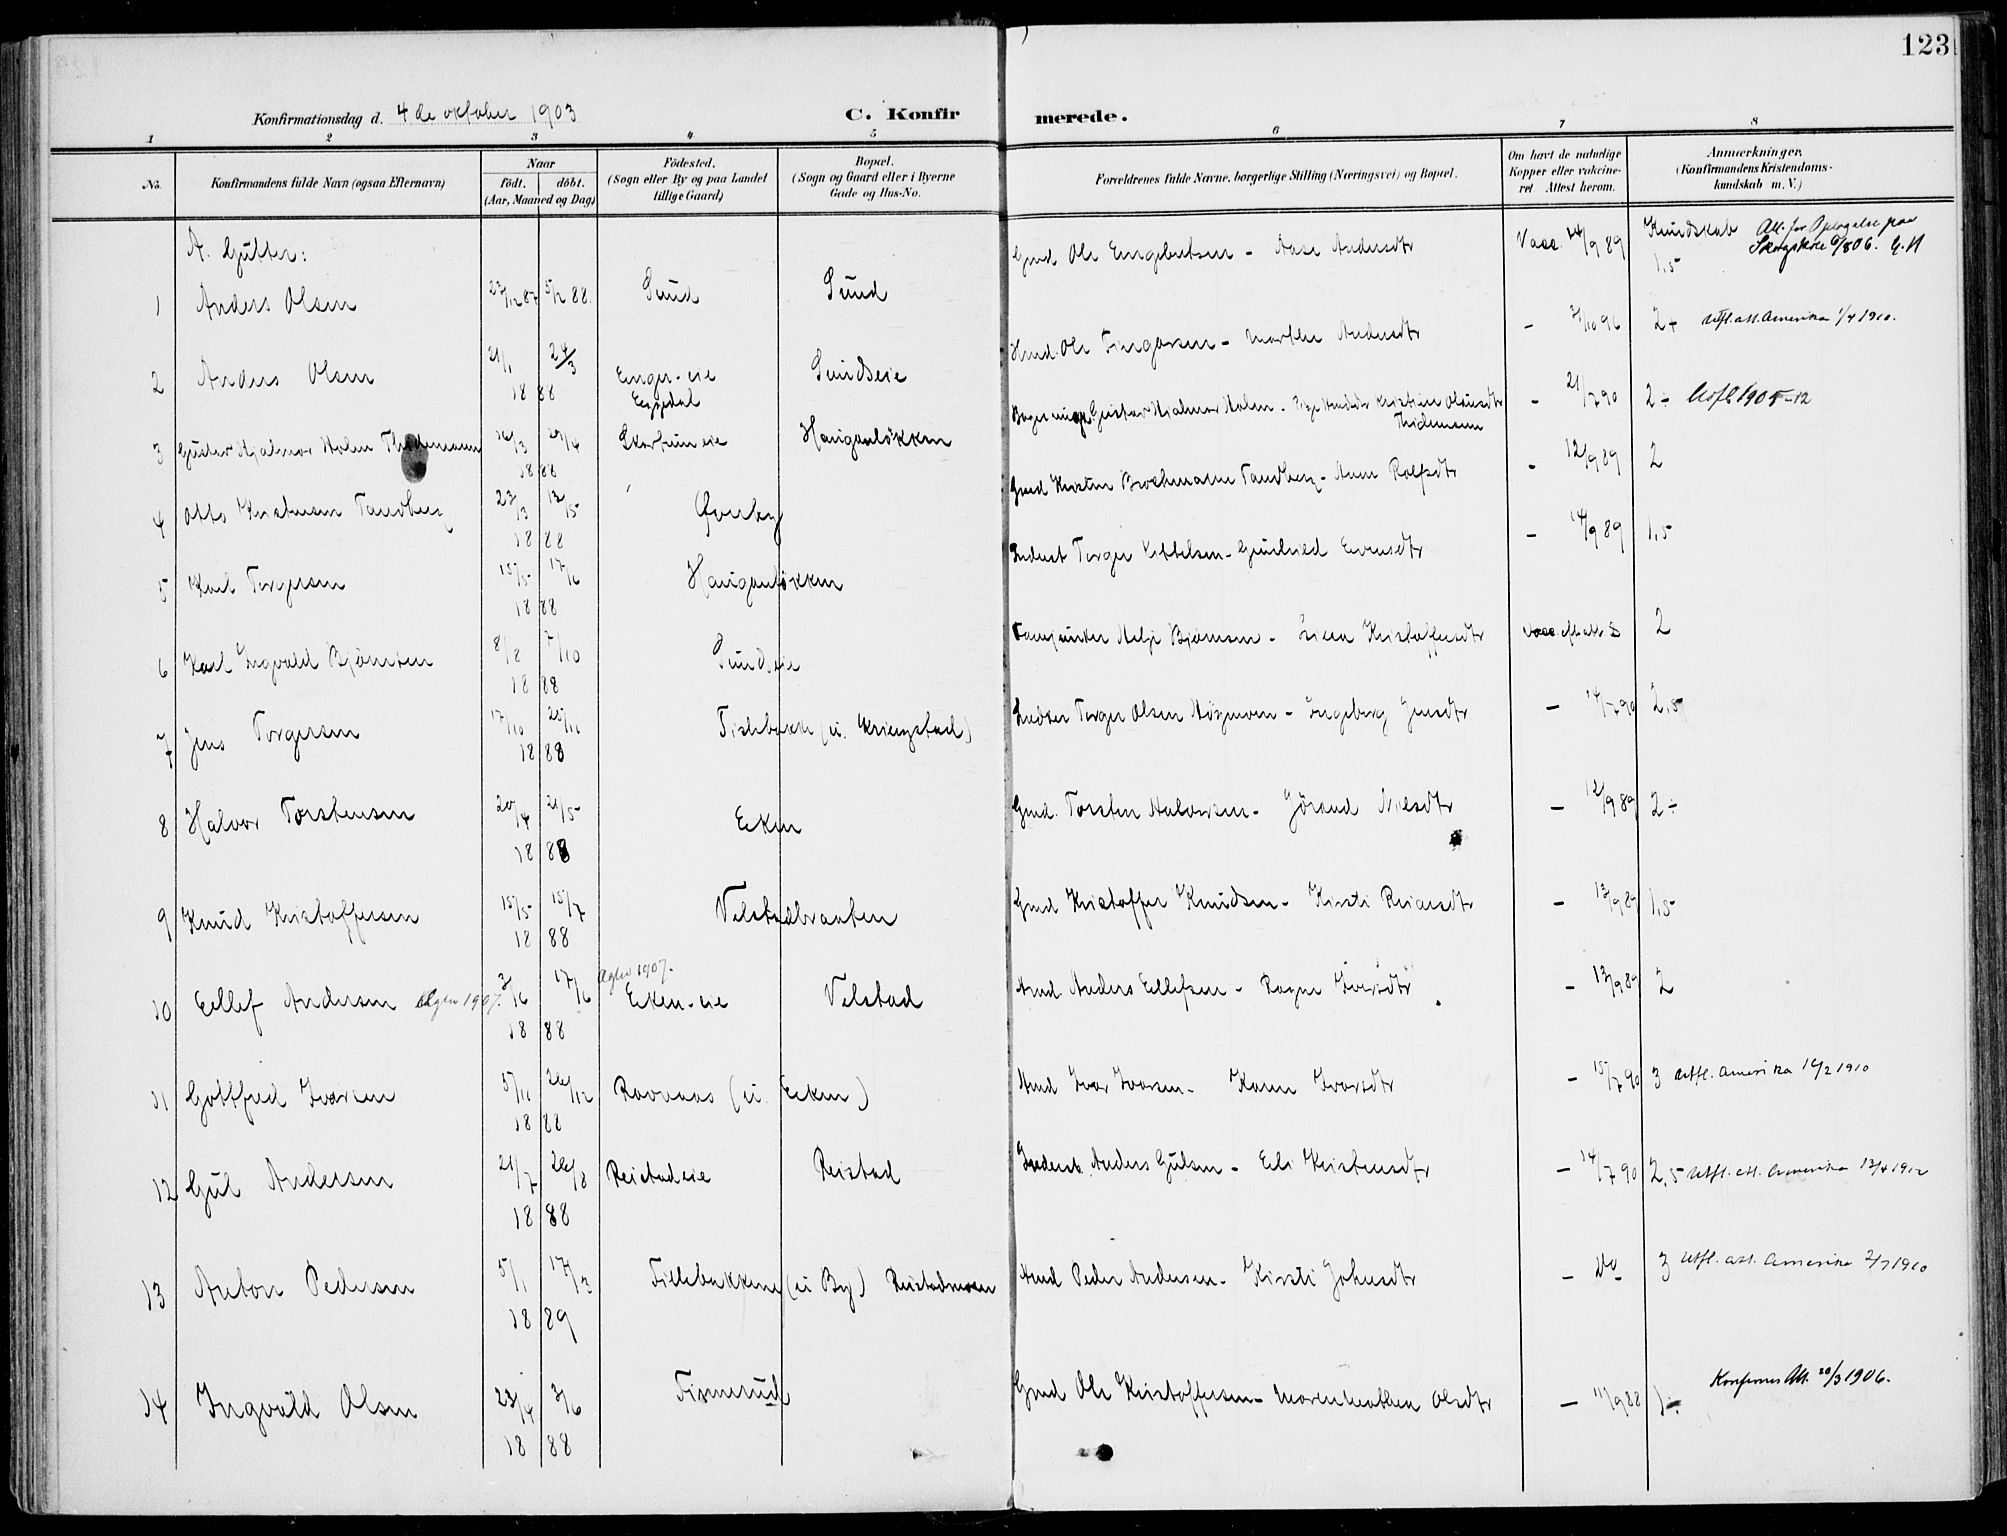 123
Konfirmationsdag d. 4de oktober 1903
C. Konfirmerede.
1 2 3 4 5 6 7 8
No.
Konfirmandens fulde Navn (ogsaa Efternavn)
Naar
födt. döbt.
(Aar, Maaned og Dag)
Födested.
(Sogn eller By og paa Landet
tillige Gaard)
Bopæl.
(Sogn og Gaard eller i Byerne
Gade og Hus-No.
Forældrenes fulde Navne, borgerlige Stilling (Næringsvei) og Bopæl.
Om havt de naturlige
Kopper eller vakcine-
ret. Attest herom.
Anmærkninger.
(Konfirmandens Kristendoms-
kundskab m. V.)
A. Gutter:
1 Anders Olsen 23/12 87 5/2 88. Sund Sund Gmd Ole Engebretsen - Aase Andersdtr Vacc. 14/9 89 Kundskab 1,5
Att. for Optagelse paa
Skogskole 6/8 06. G.H
2 Anders Olsen 21/1 24/3 1888 Enger-eie Eggedal Sundseie Hmd. Ole Torgersen - Marthe Andersdtr - 2/10 96 2+ Utfl. att. Amerika 1/4 1910.
3 Gustav Hjalmar Holm Thidemann 16/3 29/4 1888 Skartumeie Hauganløkken Gustav Hjalmar Holm - Pige Kristine Olausdtr Thidemann - 21/7 90 2÷ Utfl. 1905-12
4 Otto Kristensen Tandberg 23/3 13/5 1888 Gmd Kristen Brochmann Tandberg - Anne Rolfsdtr - 12/9 89 2
5 Karl Torgersen 15/5 17/6 1888 Hauganløkken Inderst Torger Kittelsen - Gunhild Evensdtr - 14/9 89 1,5
6 Karl Ingvald Björnsen 8/8 7/10 1888 Sundseie Helge Björnsen - Kristoffersdtr Vacc. eft. att. 2
7 Jens Torgersen 17/10 25/11 1888 Fislebakke (u. Kringstad) Torger Olsen - Ingeborg Jensdtr - 14/7 90 2,5
8 Halvor Torstensen 20/4 21/5 1888 Eken Gmd. Torsten Halvorsen - Görand Nilsdtr - 12/9 89 2÷
9 Knud Kristoffersen 15/5 15/7 1888 Velstadbraaten Gmd Kristoffer Knudsen - Kirsti - 13/9 89 1,5
10 Eellef Andersen Aglo 1907. 3/6 17/6 1888 Aglo 1907. Eken-eie Velstad Hmd. Anders Eellefsen - Ragne Iversdtr - 13/9 89 2
11 Gottfred Ivarsen 5/11 26/12 1888 Ravnaas (u. Eken) Hmd Ivar Ivarsen - Karen Ivarsdtr - 15/7 90 3 Utfl. Amerika 14/2 1910
12 Gul Andersen 21/7 26/8 1888 Reistadeie Reistad Inderst. Anders Gulsen - Eli Kristensdtr - 14/7 90 2,5 Utfl. att. Amerika 13/4 1912
13 Anton Pedersen 5/1 17/3 1889 Fillebakkene (u By) Reistadmoen Hmd Peder Andersen - Kirsti Johnsdtr - Do 3 Utfl. att. Amerika 2/7 1910
14 Ingvald Olsen 23/4 3/6 1888 Finnerud Gmd Ole Kristoffersen - Maren Mathea Olsdtr - 11/9 88 1÷ Konfirmas Att. 20/3 1906.